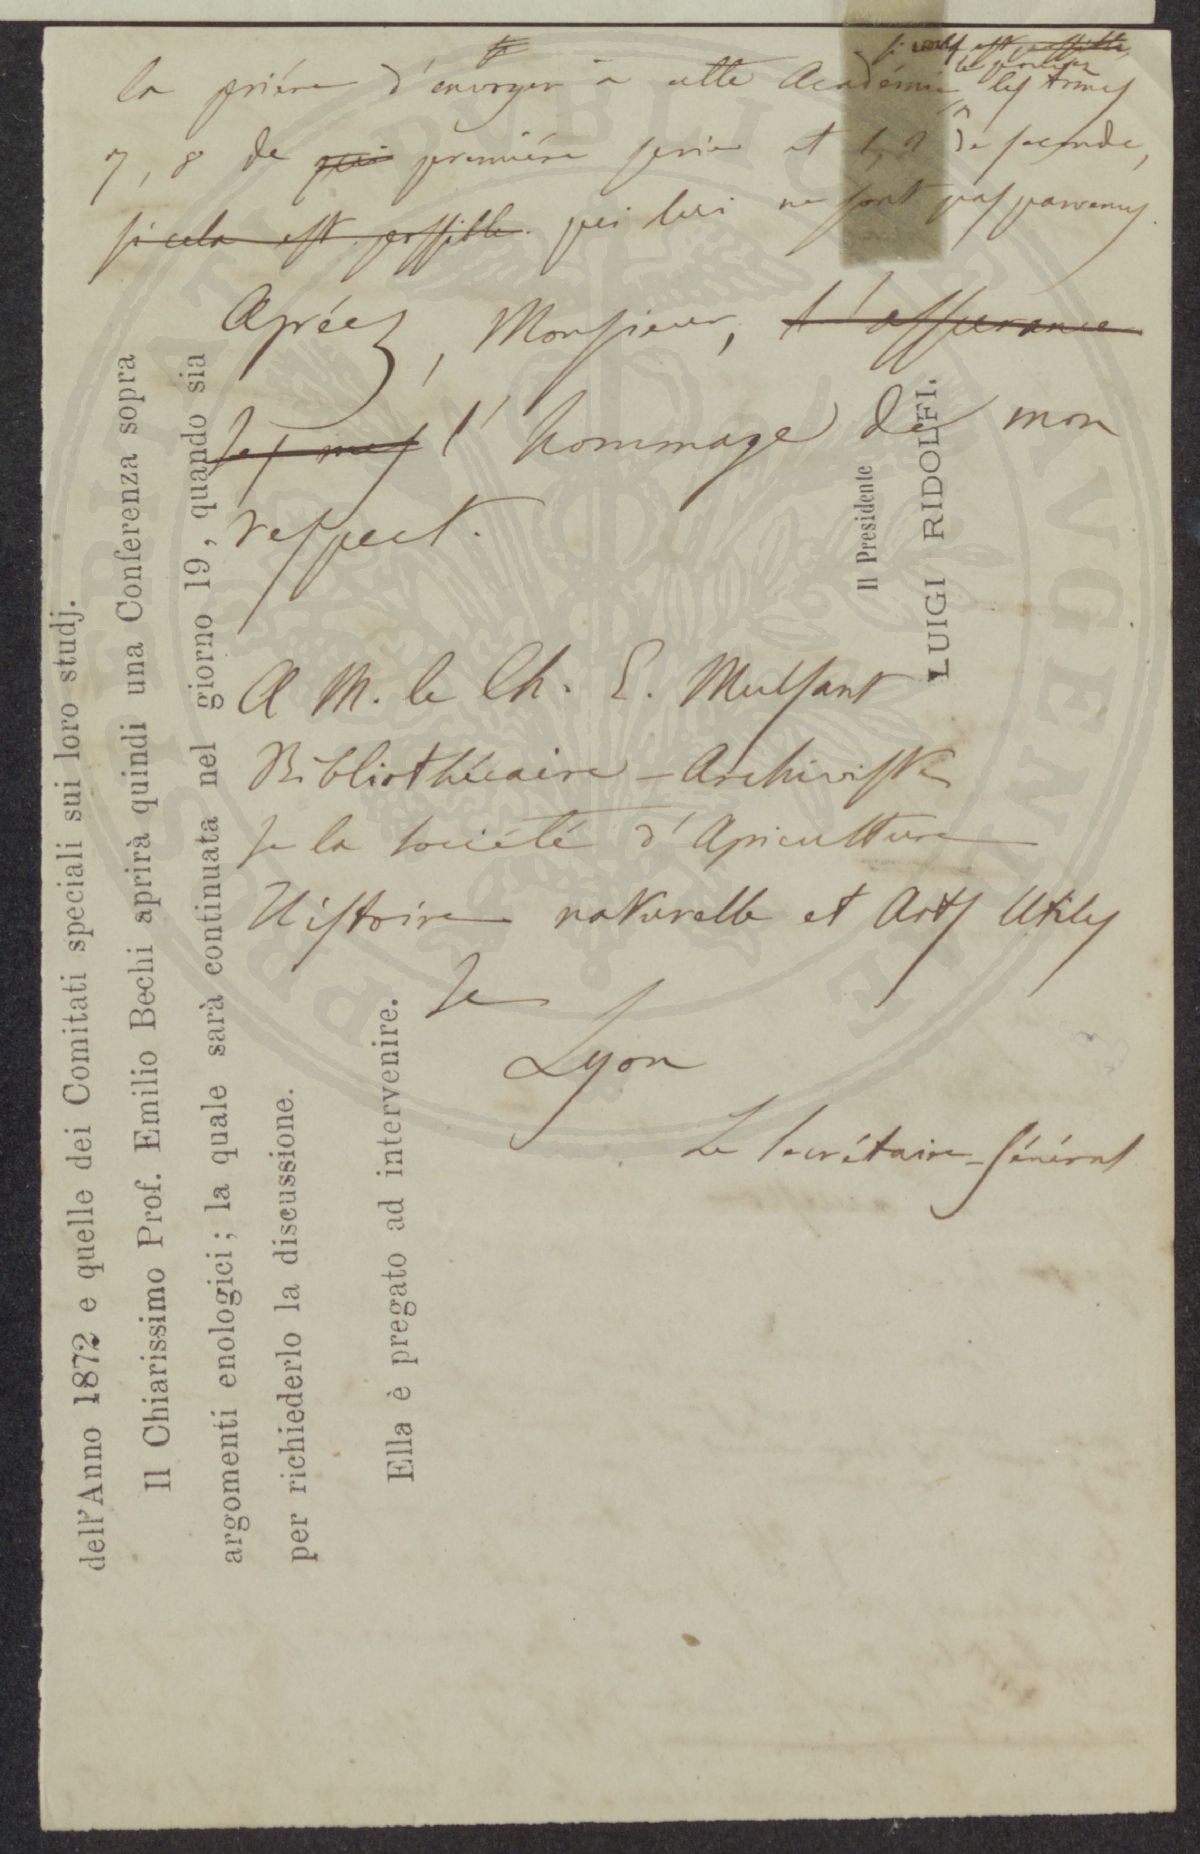 la prière d'envoyer à cette Académie, les tomes
7, 8 de qui première serie et 1, 2 de seconde,
si cela est possible qui lui ne sont pas parvenus.
Agréez, Monsieur, l'assurance
de mes l'hommage de mon
respect.
A M. le Ch. E. Mulsant
Bibliothécaire-Archiviste
de la Société d'Agriculture
Histoire naturelle et Arts Utiles
de
Lyon
Le Secrétaire-Général
dell'Anno 1872 e quelle dei Comitati speciali sui loro studj.
Il Chiarissimo Prof. Emilio Bechi aprirà quindi una Conferenza sopra
argomenti enologici; la quale sarà continuata nel giorno 19, quando sia
per richiederlo la discussione.
Ella è pregato ad intervenire.
Il Presidente
LUIGI RIDOLFI.